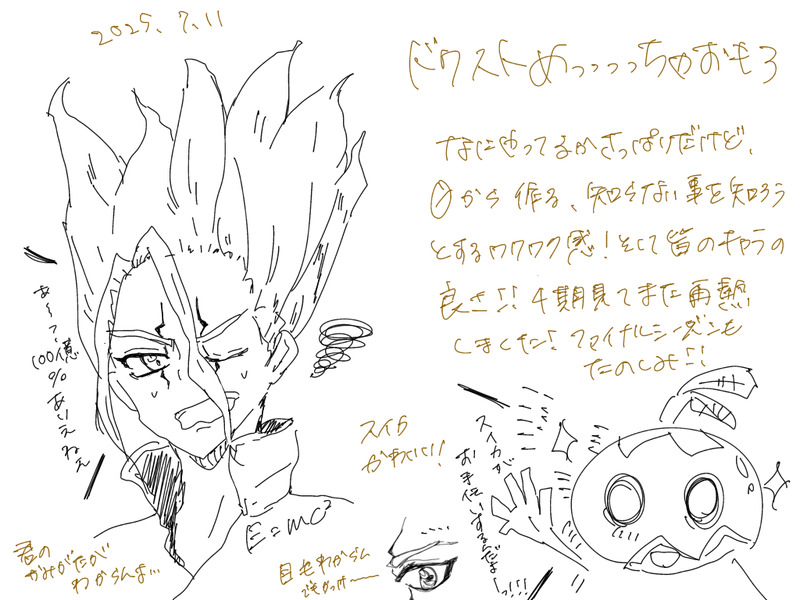 2025.7.11
ドクストめっっっっちゃおもろ
なにやってるかさっぱりだけど、
0から作る、知らない事を知ろう
とするワクワク感!そして皆のキャラの
良さ!!4期見てまた再熱
しました!ファイナルシーズンも
たのしみ!!
あ〜?
100億
%ありえねぇ
E=mc²
君の
かみがたが
わからんよ…
スイカ
かわいい!
目もわからん
でもかっけ〜〜
スイカが
お手伝いするんだよ
〜っ!!!